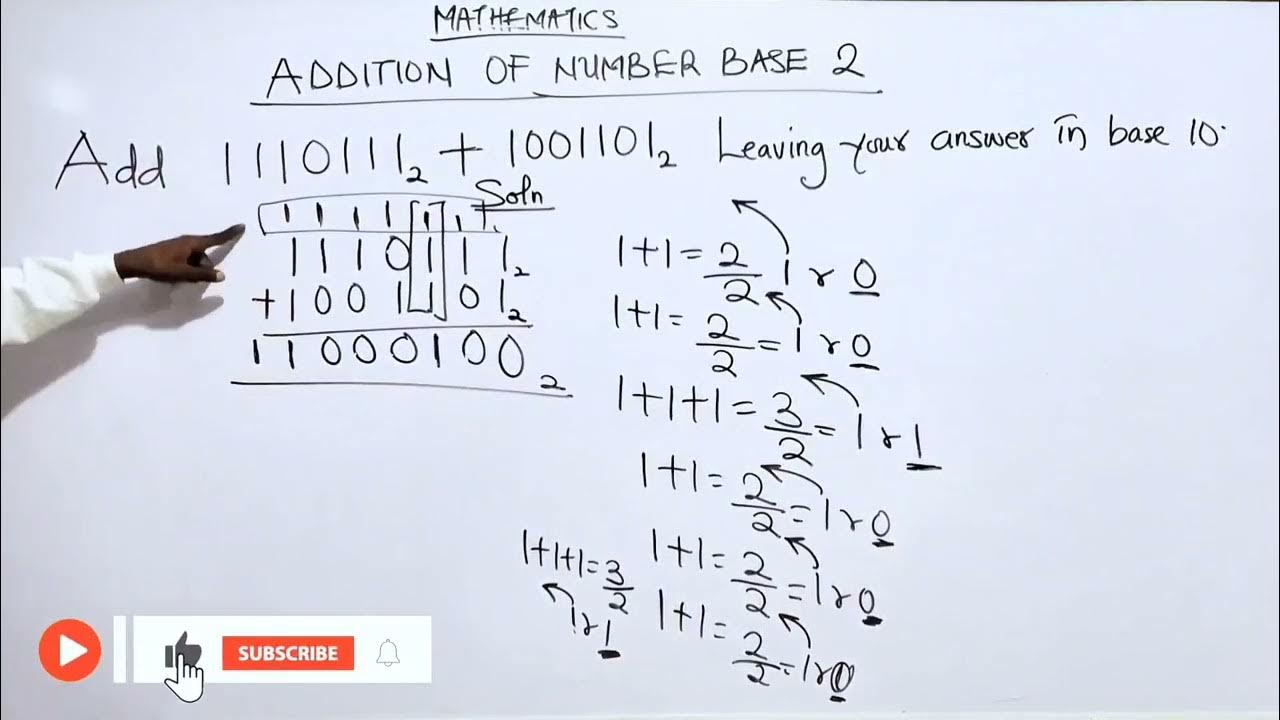 MATHEMATICS
ADDITION OF NUMBER BASE 2
Add 1110111₂ + 1001101₂ Leaving your answer in base 10.
Soln
1 1 1 1 1 1 1
1 1 1 0 1 1 1₂
+ 1 0 0 1 1 0 1₂
1 1 0 0 0 1 0 0₂
1+1= 2/2 1 r 0
1+1= 2/2 = 1 r 0
1+1+1= 3/2 = 1 r 1
1+1= 2/2 = 1 r 0
1+1= 2/2 = 1 r 0
1+1= 2/2 = 1 r 0
1+1+1= 3/2
1 r 1
SUBSCRIBE